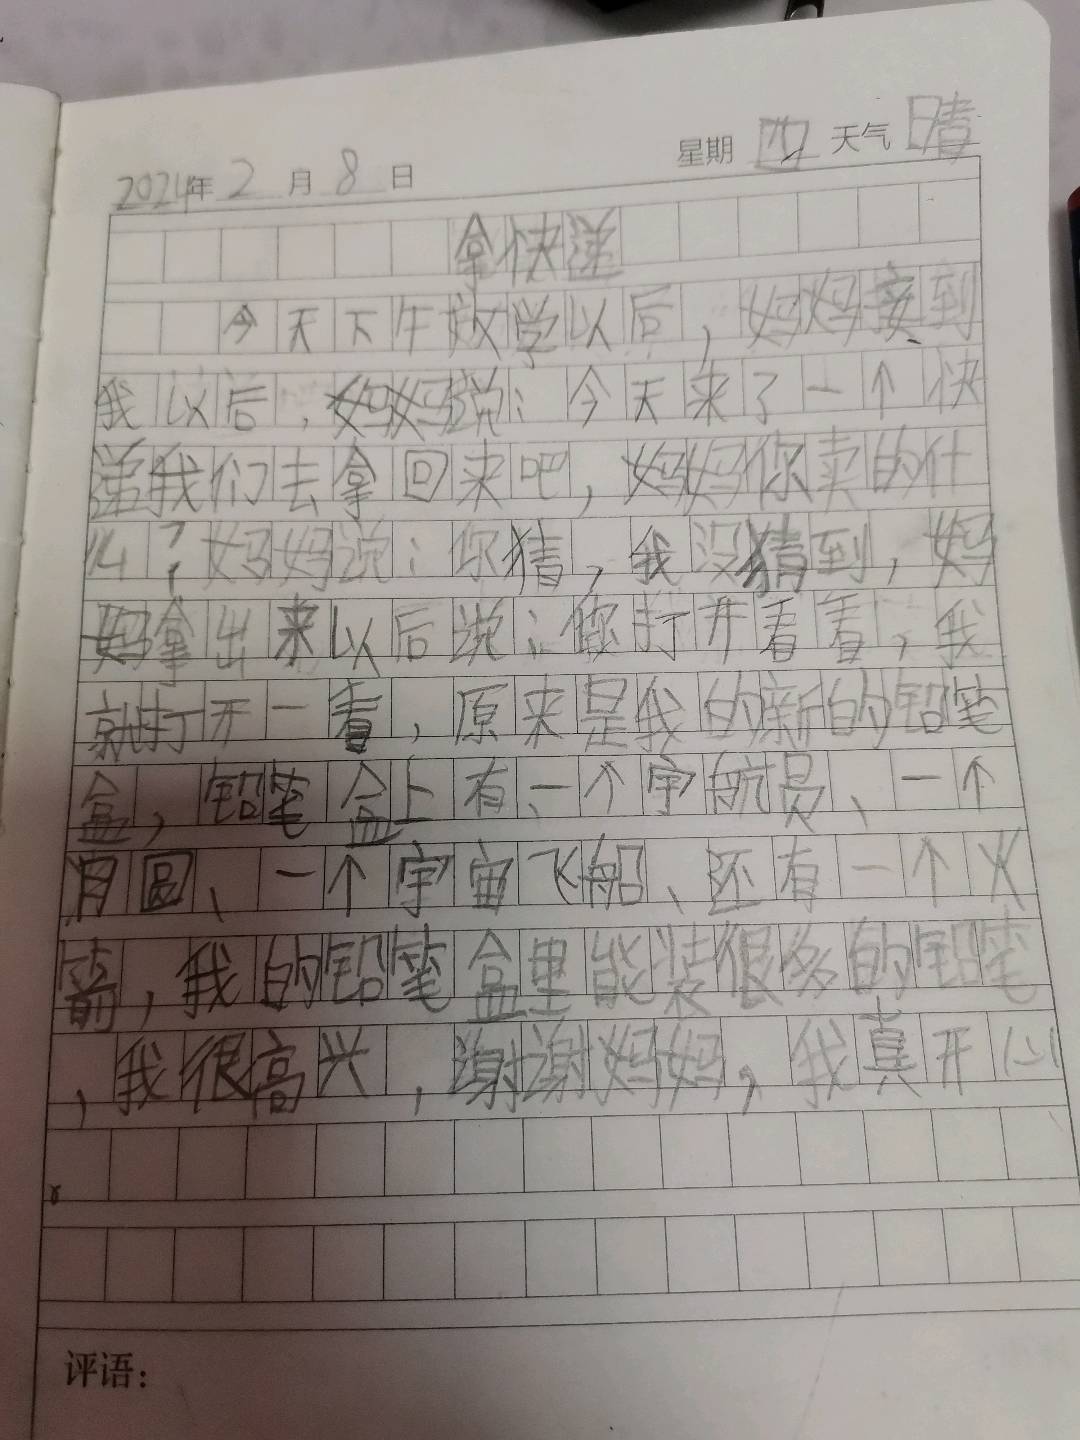 2024年 2 月 8 日 星期 四 天气 晴
拿快递
今天下午放学以后，妈妈接到
我以后，妈妈说：今天来了一个快
递我们去拿回来吧，妈妈你卖的什
么？妈妈说：你猜，我没猜到，妈
妈拿出来以后说：你打开看看，我
就打开一看，原来是我的新的铅笔
盒，铅笔盒上有、一个宇航员、一个
月圆、一个宇宙飞船、还有一个火
箭，我的铅笔盒里能装很多的铅笔
，我很高兴，谢谢妈妈，我真开心
评语：